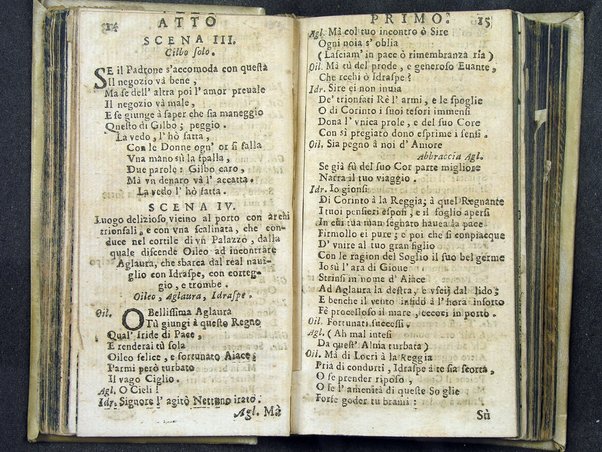 14 ATTO
SCENA III.
Cilbo solo.
SE il Padrone s'accomoda con questa
Il negozio và bene,
Ma se dell' altra poi l' amor preuale
Il negozio và male,
E se giunge à saper che sia maneggio
Questo di Gilbo; peggio.
La vedo, l' hò fatta,
Con le Donne ogn' or si falla
Vna mano sù la spalla,
Due parole: Gilbo caro,
Mà vn denaro và l' accatta.
La vedo l' hò fatta.
SCENA IV.
Luogo delizioso vicino al porto con archi
trionfali, e con vna scalinata, che con-
duce nel cortile di vn Palazzo, dalla
quale discende Oileo ad incontrare
Aglaura, che sbarca dal real naui-
glio con Idraspe, con corteg-
gio, e trombe.
Oileo, Aglaura, Idraspe.
Oil. O Bellissima Aglaura
Tù giungi à questo Regno
Qual' Iride di Pace,
E renderai tù sola
Oileo felice, e fortunato Aiace;
Parmi però turbato
Il vago Ciglio.
Agl. O Cieli!
Idr. Signore l' agitò Nettuno irato.
Agl. Mà
PRIMO. 15
Agl. Mà col tuo incontro ò Sire
Ogni noia s' oblia
(Lasciam' in pace ò rimembranza ria)
Oil. Mà tù del prode, e generoso Euante,
Che rechi ò Idraspe?
Idr. Sire ei non inuia
De' trionfati Rè l' armi, e le spoglie
O di Corinto i suoi tesori immensi
Dona l' vnica prole, e del suo Core
Con sì pregiato dono esprime i sensi.
Oil. Sia pegno à noi d' Amore
Abbraccia Agl.
Se già sù del suo Cor parte migliore
Narra il tuo viaggio.
Idr. Io gionsi
Di Corinto à la Reggia; à quel Regnante
I tuoi pensieri esponi, e il foglio apersi
In cui tua man segnato hauea la pace
Firmollo ei pure; e poi che si conpiacque
D' vnire al tuo gran figlio
Con le ragion del Soglio il suo bel germe
Io sù l' ara di Gioue
Strinsi in nome d' Aiace
Ad Aglaura la destra, e sueil dal lido;
E benche il vento infido à l' hora insorto
Fè procelloso il mare, eccoci in porto.
Oil. Fortunati successi.
Agl. (Ah mal intesi
Da quest' Alma turbata)
Oil. Mà di Locri à la Reggia
Pria di condurti, Idraspe à te sia scorta,
O se prender riposo,
O se l' amenità di queste Soglie
Forse goder tu brami:
Sù